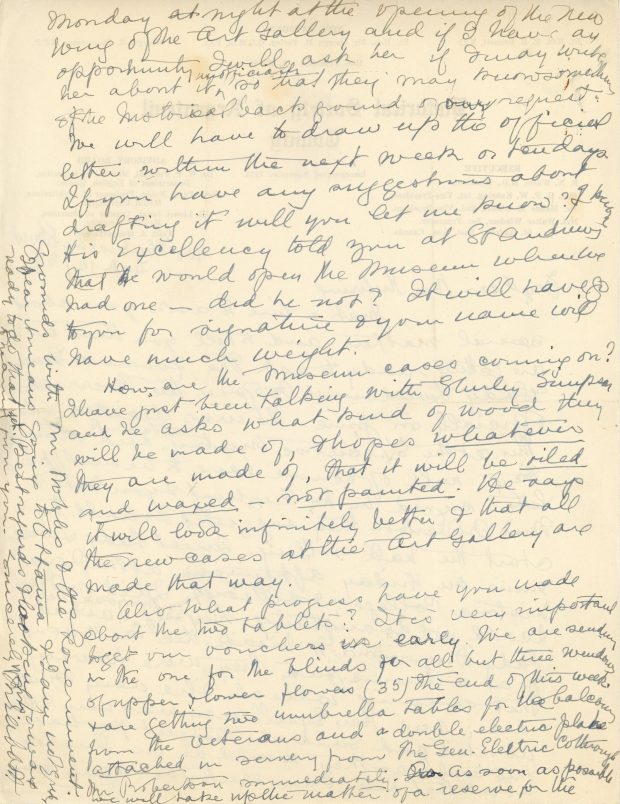 Monday at night at the opening of the new
wing of the Art Gallery and if I have an
opportunity I will ask her if I may write
her about it unofficially so that they may know something
of the historical background of our request.
We will have to draw up the official
letter within the next week or ten days
If you have any suggestions about
drafting it will you let me know? I know
His Excellency told you at St Andrews
that he would open the Museum when we
had one – did he not? It will have to go
to you for signature & your name will
have much weight.
How are the Museum cases coming on?
I have just been talking with Shirley Simpson
and he asks what kind of wood they
will be made of, & hopes whatever
they are made of, that it will be oiled
and waxed – not painted. He says
it will look infinitely better & that all
the new cases at the Art Gallery are
made that way.
Also what progress have you made
about the two tablets? It is very important
to get our vouchers in early. We are sending
in the one for the blinds for all but three windows
of upper & lower floors (35) the end of this week
& are getting two umbrella tables for the balcony
from the Veterans and a double electric plate
attached in servery from the Gen. Electric Co through
Mr Robertson immediately. As soon as possible
we will take up the matter of a reserve for the
Grounds with Mr Nobbs & the Government.
That means going to Ottawa & I am not
ready to do that yet. Best regards & looking forward
to hearing from you
Sincerely